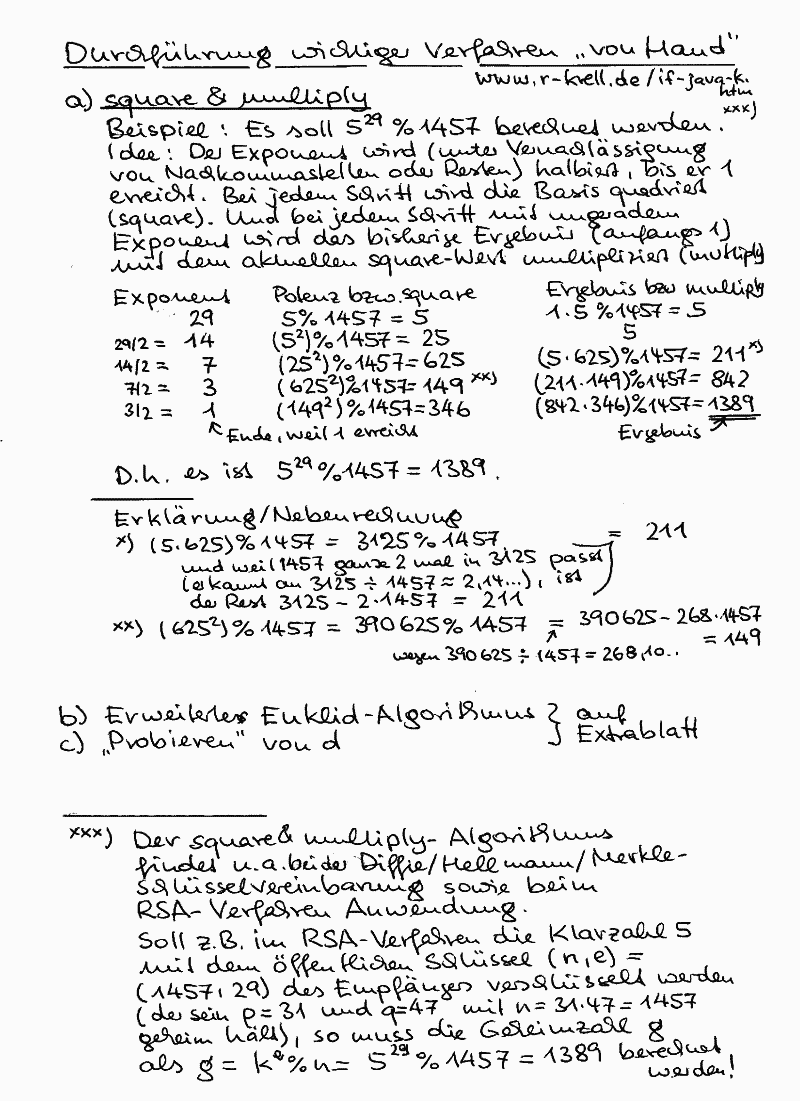 Durchführung wichtiger Verfahren „von Hand"
www.r-krell.de/if-java-k.htm
xxx)
a) square & multiply
Beispiel: Es soll 5²⁹ % 1457 berechnet werden.
Idee: Der Exponent wird (unter Vernachlässigung
von Nachkommastellen oder Resten) halbiert, bis er 1
erreicht. Bei jedem Schritt wird die Basis quadriert
(square). Und bei jedem Schritt mit ungeradem
Exponent wird das bisherige Ergebnis (anfangs 1)
mit dem aktuellen square-Wert multipliziert (multiply)
Exponent Potenz bzw. square Ergebnis bzw multiply
29 5 % 1457 = 5 1·5 % 1457 = 5
29/2 = 14 (5²) % 1457 = 25 5
14/2 = 7 (25²) % 1457 = 625 (5·625) % 1457 = 211 x)
7/2 = 3 (625²) % 1457 = 149 xx) (211·149) % 1457 = 842
3/2 = 1 (149²) % 1457 = 346 (842·346) % 1457 = 1389
Ende, weil 1 erreicht Ergebnis
D.h. es ist 5²⁹ % 1457 = 1389.
Erklärung/Nebenrechnung
x) (5·625) % 1457 = 3125 % 1457 = 211
und weil 1457 ganze 2 mal in 3125 passt
(erkannt an 3125 ÷ 1457 ≈ 2,14...), ist
der Rest 3125 - 2·1457 = 211
xx) (625²) % 1457 = 390625 % 1457 = 390625 - 268·1457
= 149
wegen 390625 ÷ 1457 = 268,10..
b) Erweiterter Euklid-Algorithmus } auf
c) „Probieren" von d } Extrablatt
xxx) Der square & multiply-Algorithmus
findet u.a. bei der Diffie/Hellmann/Merkle-
Schlüsselvereinbarung sowie beim
RSA-Verfahren Anwendung.
Soll z.B. im RSA-Verfahren die Klarzahl 5
mit dem öffentlichen Schlüssel (n,e) =
(1457, 29) des Empfängers verschlüsselt werden
(der sein p=31 und q=47 mit n=31·47=1457
geheim hält), so muss die Geheimzahl g
als g = kᵉ % n = 5²⁹ % 1457 = 1389 berechnet
werden!